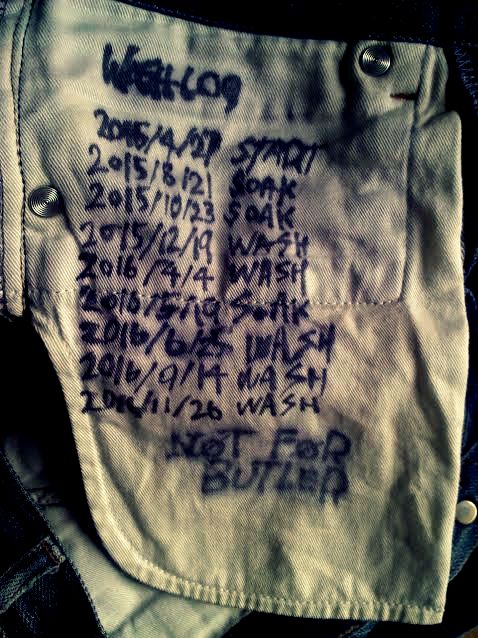 WASH LOG
2015/4/27 START
2015/8/21 SOAK
2015/10/23 SOAK
2015/12/19 WASH
2016/4/4 WASH
2016/5/19 SOAK
2016/6/25 WASH
2016/9/14 WASH
2016/11/26 WASH
NOT FOR
BUTLER